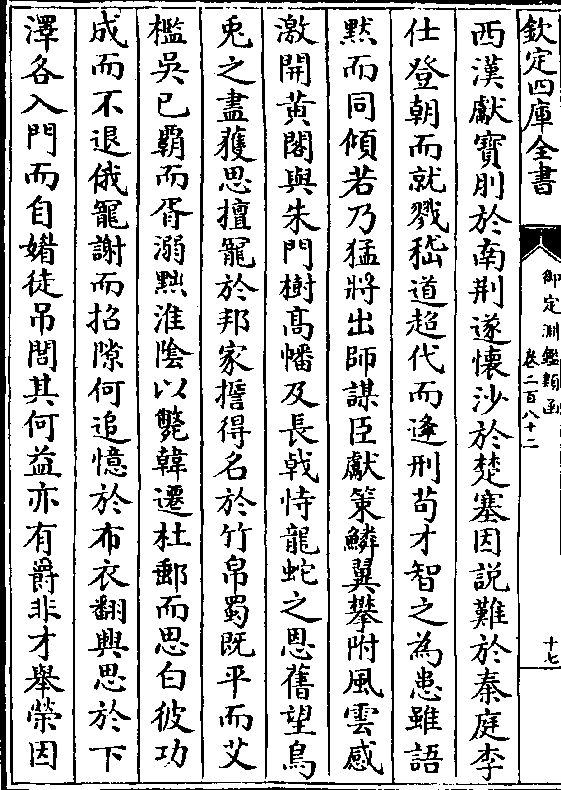 欽定四庫全書
御定淵鑑類函
卷二百八十二
十七
西漢獻寶刖於南荆遂懷沙於楚塞因說難於秦庭李
仕登朝而就戮嵇道超代而逢刑茍才智之為患雖語
黙而同傾若乃猛將出師謀臣獻策鱗翼攀附風雲感
激開黄閣與朱門樹髙幡及長㦸恃龍蛇之恩舊望鳥
兎之盡獲思擅寵於邦家誓得名於竹帛蜀既平而艾
檻吳已霸而胥溺黜淮陰以斃韓遷杜郵而思白彼功
成而不退俄寵謝而招隙何追憶於布衣翻興思於下
澤各入門而自媢徒吊閭其何益亦有爵非才舉榮因